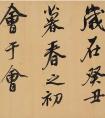 歲在癸丑
暮春之初
會于會